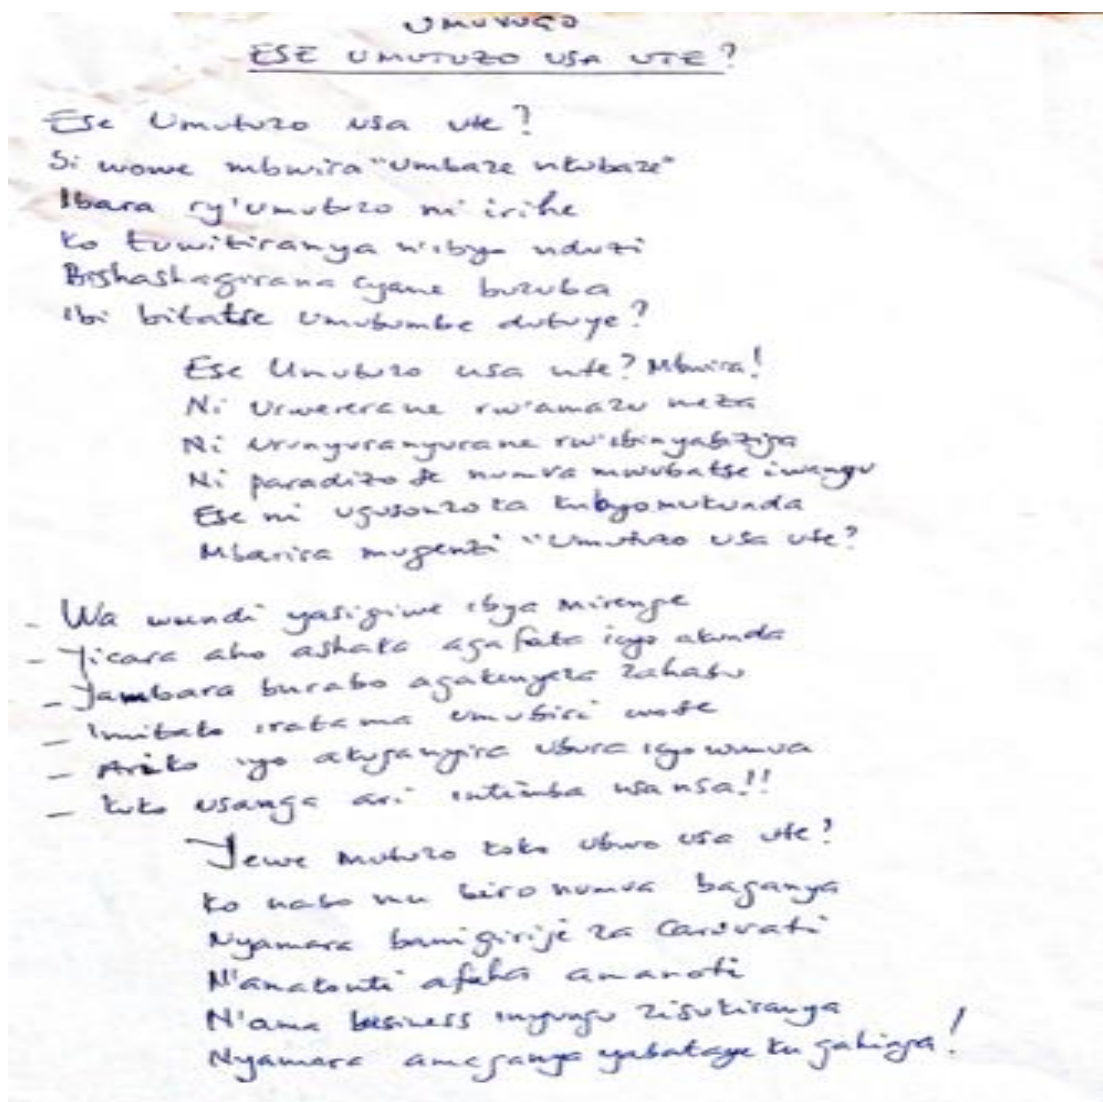 UMUVUGO
ESE UMUTUZO USA UTE?
Ese Umutuzo usa ute?
Si wowe mbwira "Umbaze nkubaze"
Ibara ry'umutuzo ni irihe
Ko tuwitiranya n'ibyo nduzi
Bishashagirana cyane buzuba
Ibi bitatse Umubumbe dutuye?
Ese Umutuzo usa ute? Mbwira!
Ni Urwererane rw'amazu meza
Ni Urunyuranyurane rw'ibinyabiziga
Ni paradizo se numva mwubatse iwanyu
Ese ni ugusonzoka kubyo mukunda
Mbarira mugenzi "Umutuzo usa ute?
- Wa wundi yasigiwe ibya Mirenge
- Yicara aho ashaka agafata icyo akunda
- Yambara burabo agakenyera zahabu
- Imibato iratama umubiri wose
- Ariko iyo akuganyira ubura icyo wumva
- Koko usanga ari intimba usa nsa!!
Yewe mutuzo koko ubwo usa ute?
Ko nabo mu biro numva baganya
Nyamara banigirije za Caruvati
N'amakonti afuha amanoti
N'ama business inyungu zisukiranya
Nyamara amaganya yabataye ku gahinga!